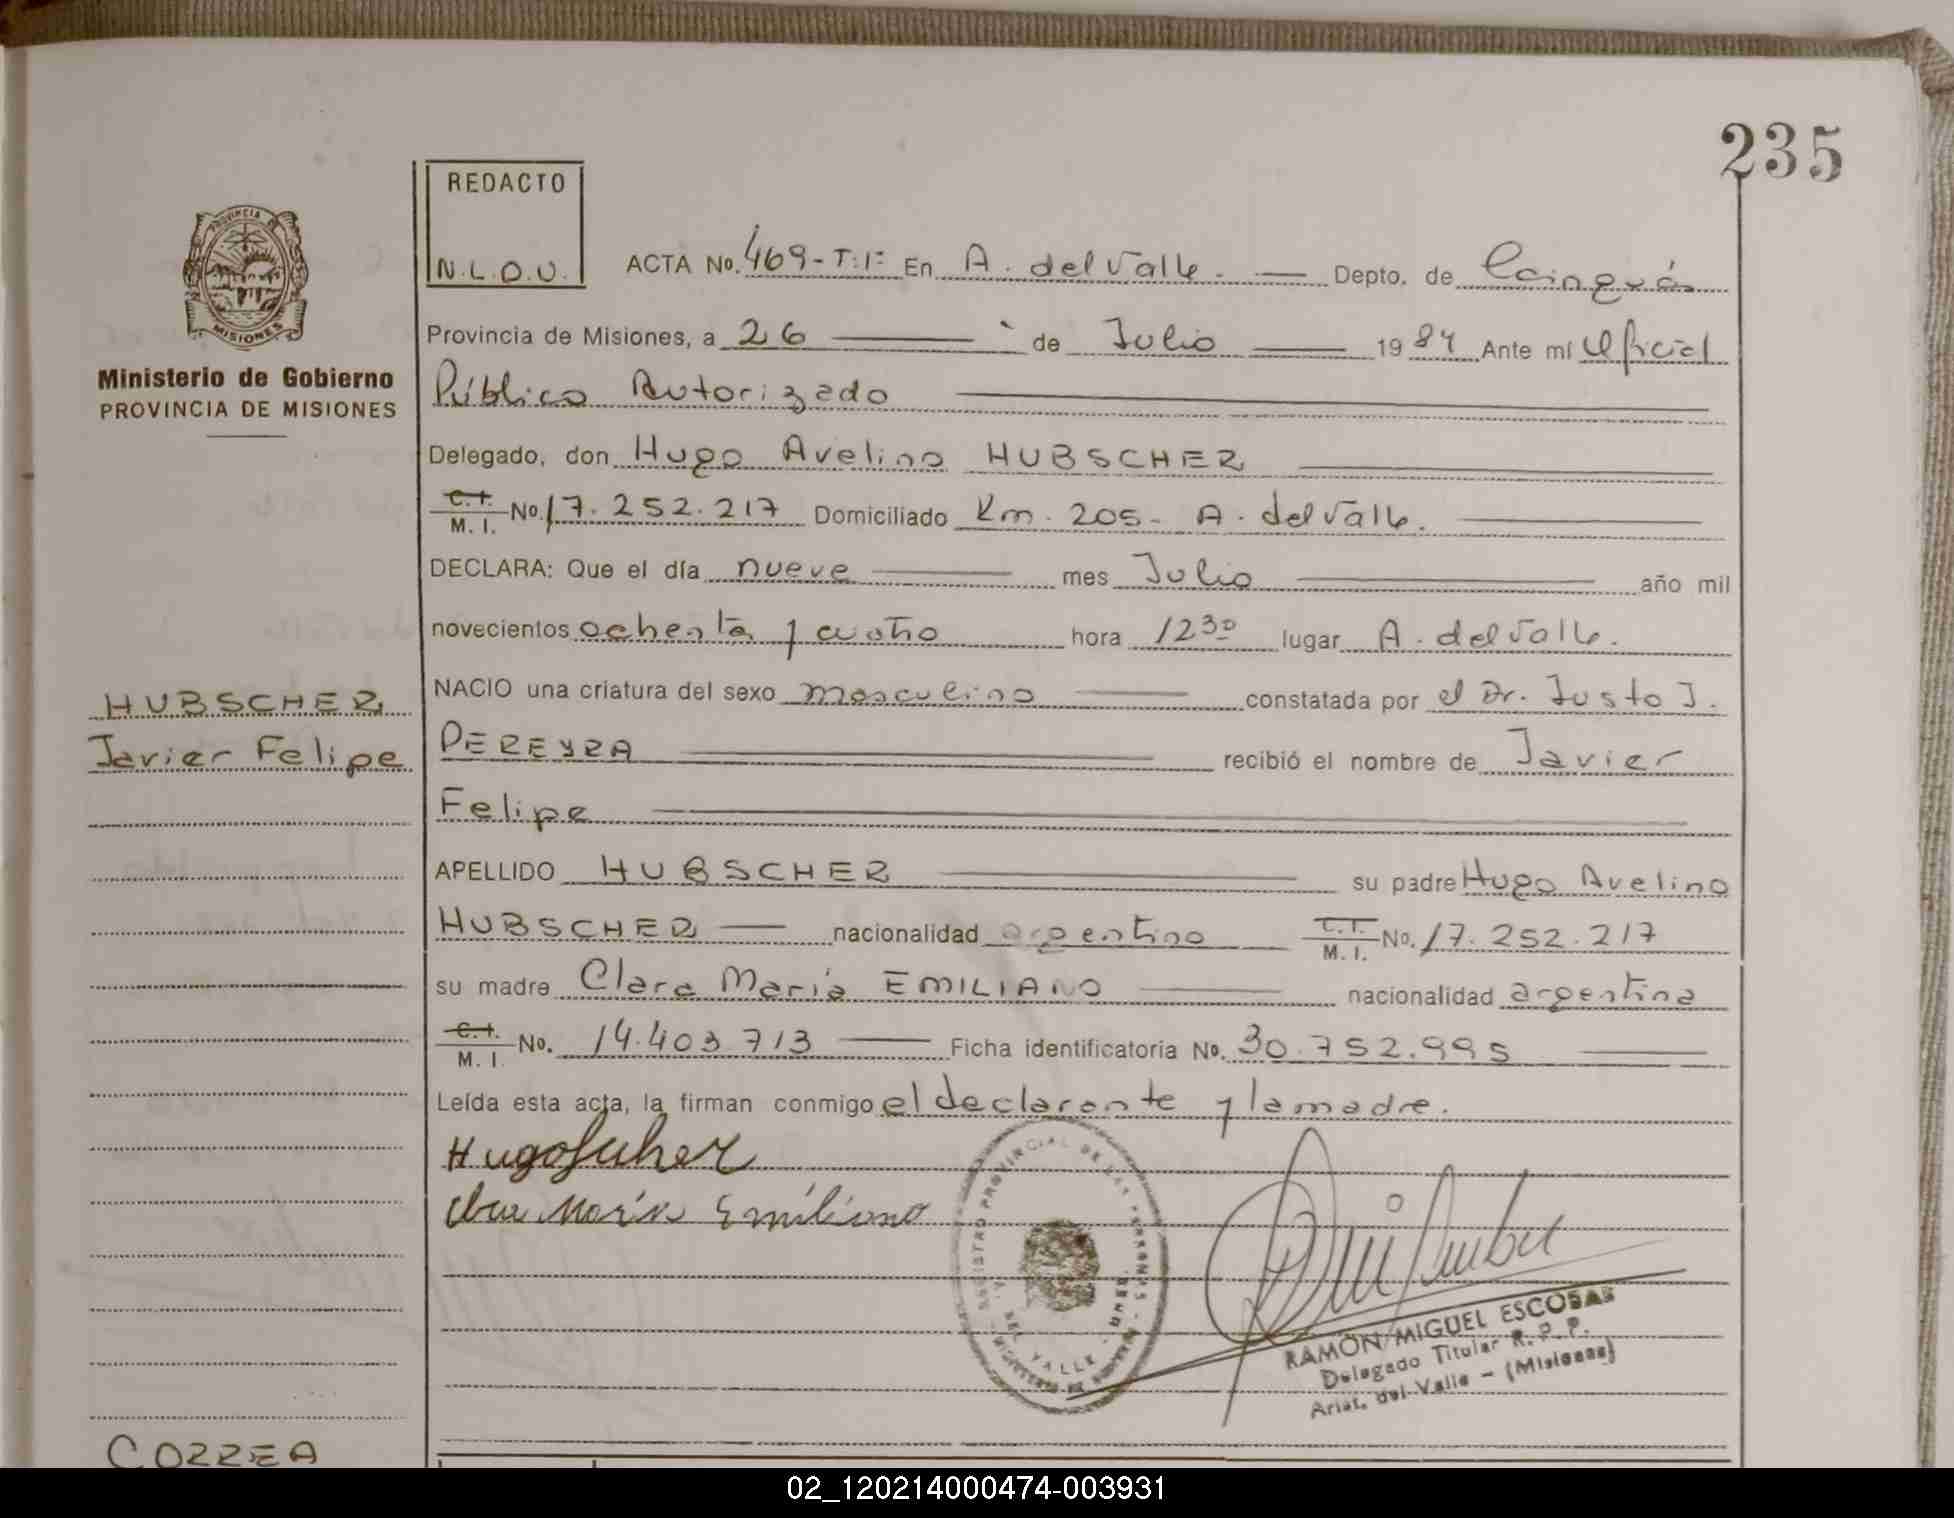 235
REDACTO
N.L.O.U.
PROVINCIA DE
MISIONES
Ministerio de Gobierno
PROVINCIA DE MISIONES
ACTA No. 469-T:1º En A. del Valle. Depto. de Cainguás
Provincia de Misiones, a 26 de Julio 1984 Ante mí Oficial
Público Autorizado
Delegado, don Hugo Avelino HUBSCHER
C.I. M. I. No. 17.252.217 Domiciliado Km. 205- A. del Valle.
DECLARA: Que el día nueve mes Julio año mil
novecientos ochenta y cuatro hora 12 30 lugar A. del Valle.
NACIO una criatura del sexo masculino constatada por el Dr. Justo J.
PEREYRA recibió el nombre de Javier
Felipe
HUBSCHER
Javier Felipe
APELLIDO HUBSCHER su padre Hugo Avelino
HUBSCHER nacionalidad argentino C.I. M. I. No. 17.252.217
su madre Clara María EMILIANO nacionalidad argentina
C.I. M. I. No. 14.403.713 Ficha identificatoria No. 30.752.995
Leída esta acta, la firman conmigo el declarante y la madre.
Clara María Emiliano
REGISTRO PROVINCIAL DE LAS PERSONAS
DEL VALLE
RAMON MIGUEL ESCOBAR
Delegado Titular R. P. P.
Arist. del Valle - (Misiones)
CORREA
02_120214000474-003931